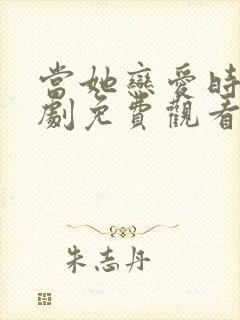 當她戀愛時
劇免費觀看
朱志丹